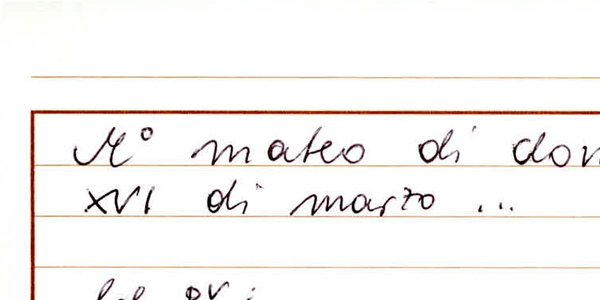 M° mateo di
XVI di marzo ...